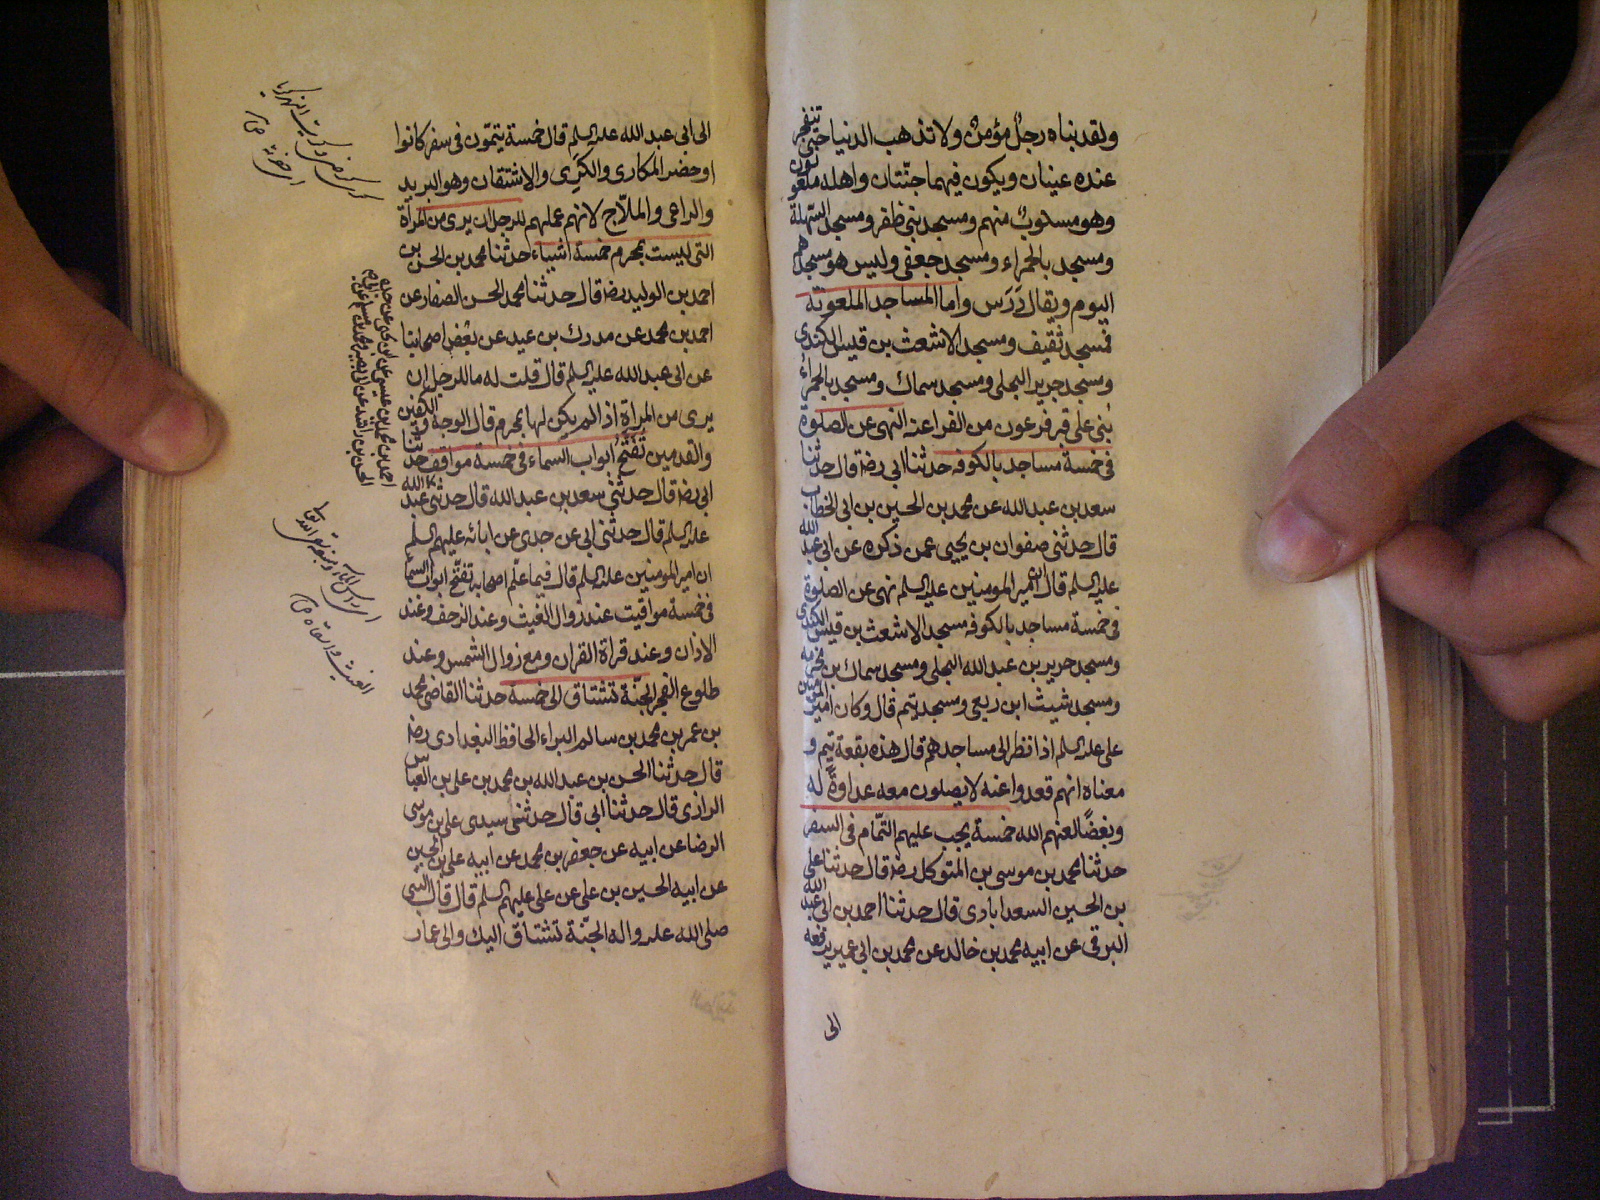 ولقد بناه رجل مؤمن ولا تذهب الدنيا حتى تنفجر
عنده عينان ويكون فيهما جنتان واهله ملعونون
وهو مسلوب منهم ومسجد بني ظفر ومسجد السهلة
ومسجد بالحمراء ومسجد جعفي وليس هو مسجدهم
اليوم ويقال درس واما المساجد الملعونة
فمسجد ثقيف ومسجد الاشعث بن قيس الكندي
ومسجد جرير البجلي ومسجد سماك ومسجد بالحمراء
بني على قبر فرعون من الفراعنه النهى عن الصلوة
في خمسة مساجد بالكوفه حدثنا ابي رضه قال حدثنا
سعد بن عبد الله عن محمد بن الحسين بن ابي الخطاب
قال حدثني صفوان بن يحيى عمن ذكره عن ابي عبد الله
عليه السلم قال ان امير المومنين عليه السلم نهى عن الصلوة
في خمسة مساجد بالكوفه مسجد الاشعث بن قيس الكندي
ومسجد جرير بن عبد الله البجلي ومسجد سماك بن مخرمه
ومسجد شيث ابن ربعي ومسجد تيم قال وكان امير المومنين
علي عليه السلم اذا نظر الى مساجدهم قال هذه بقعة تيم و
معناه انهم قعدوا عنه لا يصلون معه عداوة له
وبغضا لعنهم الله خمسة يجب عليهم التمام في السفر
حدثنا محمد بن موسى بن المتوكل رضه قال حدثنا علي
بن الحسين السعدابادي قال حدثنا احمد بن ابي عبد الله
البرقي عن ابيه محمد بن خالد عن محمد بن ابي عمير يرفعه
الى
الى ابي عبد الله عليه السلم قال خمسة يتمون في سفر كانوا
او حضر المكاري والكرى والاشتقان وهو البريد
والراعي والملاح لانهم عملهم للرجل ان يرى من المرأة
التي ليست بمحرم خمسة اشياء حدثنا محمد بن الحسن بن
احمد بن الوليد رضه قال حدثنا محمد الحسن الصفار عن
احمد بن محمد عن مدرك بن عبيد عن بعض اصحابنا
عن ابي عبد الله عليه السلم قال قلت له ما للرجل ان
يرى من المرأة اذا لم يكن لها بمحرم قال الوجه والكفين
والقدمين تفتح ابواب السماء في خمسة مواقف حدثنا
ابي رضه قال حدثني سعد بن عبد الله قال حدثني
عليه السلم قال حدثني ابي عن جدي عن ابائه عليهم السلم
ان امير المومنين عليه السلم قال فيما علم اصحابه تفتح ابواب السماء
في خمسة مواقيت عند نزول الغيث وعند الزحف وعند
الاذان وعند قراة القران ومع زوال الشمس وعند
طلوع الفجر الجنة تشتاق الى خمسة حدثنا القاضي محمد
بن عمر بن محمد بن سالم البراء الحافظ البغدادي رضه
قال حدثنا الحسن بن عبد الله بن محمد بن علي بن العباس
الرازي قال حدثنا ابي قال حدثني سيدي علي بن موسى
الرضا عن ابيه عن جعفر بن محمد عن ابيه علي بن الحسين
عن ابيه الحسين بن علي عن علي عليهم السلم قال قال النبي
صلى الله عليه واله الجنة تشتاق اليك والى عمار
احمد بن محمد بن عيسى عن ابن يحيى عن جده
الحسن بن راشد عن ابي بصير ومحمد بن مسلم عن